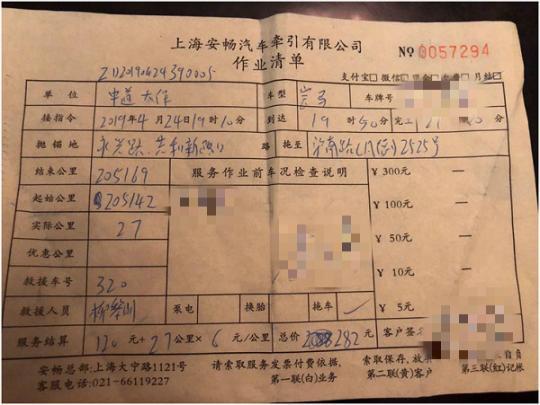 上海安畅汽车牵引有限公司
作业清单
№ 0057294
ZD20190424390005
支付宝□ 微信□ 现金□ 月结□
单位 申道大件 车型 车牌号
接指令 2019年4月24日19时10分 到达 19时50分 完工
抛锚地 永兴路、共和新路口 路 拖至 沪南路 2525号
结束公里 205169 服务作业前车况检查说明 ¥ 300元 —
起始公里 205142 ¥ 100元 —
实际公里 27 ¥ 50元 —
优惠公里 ¥ 10元 —
救援车号 320
救援人员 泵电 换胎 拖车 ✓ ¥ 5元 —
服务结算 120元+27公里×6元/公里 总价 282元 客户签
安畅总部:上海大宁路1121号
客服电话:021-66119227
请索取服务发票付费依据,
第一联(白)业务
索取保存,放
第二联(黄)客户
第三联(红)记帐